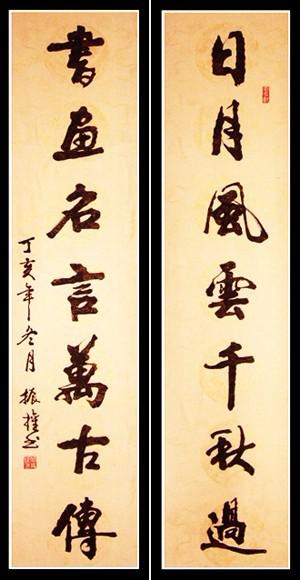 日月風雲千秋過
書画名言萬古傳
丁亥年冬月 振權书